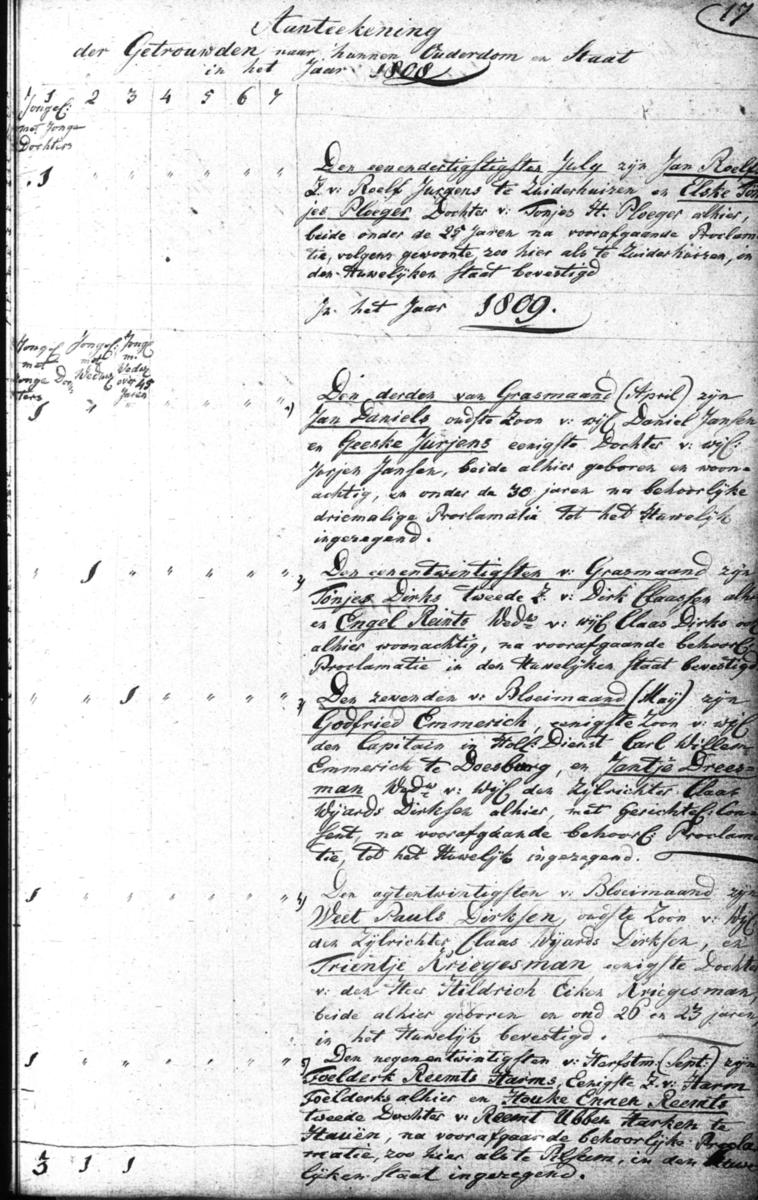 17
Aanteekening
der Getrouwden naar hunnen Ouderdom en Staat
in het Jaar 1808
1 2 3 4 5 6 7
Jongel:
met Jonge
Dochters
1 " " " " " "
Den eenendertigstigsten July zyn Jan Roelfs
Z. v: Roelf Jurgens te Zuiderhuizen en Elske Ton
jes Ploeger Dochter v: Tonjes H. Ploeger alhier,
beide onder de 25 Jaren na voorafgaande Proclam
tie, volgens gewoonte, zoo hier als te Zuiderhuizen, in
den Huwelijken Staat bevestigd
In het Jaar 1809.
Jongel: Jongel: Jonge
met met m.
Jonge Doch Weduw Weduw
ters over 45
Jaren
1 " " " " " " 1)
Den derden van Grasmaand (April) zijn
Jan Daniels oudste zoon v: wijl Daniel Jansen
en Geeske Jurjens eenigste Dochter v: wijl:
Jurjen Jansen, beide alhier geboren en woon
achtig, en onder de 30 jaren na behoorlijke
driemalige Proclamatie tot het Huwelijk
ingezegend.
" 1 " " " " " 2)
Den eenentwintigsten v: Grasmaand zijn
Tonjes Dirks tweede Z. v: Dirk Claassen alh
en Engel Reints Wedw v: wijl Claas Dirks ook
alhier woonachtig, na voorafgaande behoorl
Proclamatie in den Huwelijken Staat bevestigd
" " 1 " " " " 3)
Den zevenden v: Bloeimaand (May) zijn
Godfried Emmerich, eenigste Zoon v: wijl
den Capitain in Holl: Dienst Carl Willem
Emmerich te Doesburg, en Jantje Drees
man Wedw v: wijl den Zijlrichter Claas
Wijards Dirksen alhier, met Gerichtel Con
sent, na voorafgaande behoorl Proclama
tie, tot het Huwelijk ingezegend.
1 " " " " " " 4)
Den agtentwintigsten v: Bloeimaand zijn
Weet Pauls Dirksen, oudste Zoon v: Wijl
den Zijlrichter Claas Wijards Dirksen, en
Trientje Kriegesman, eenigste Dochter
v: den Heer Hildrich Eiken Kriegesman,
beide alhier geboren en ond 26 en 23 jaren,
in het Huwelijk bevestigd.
1 " " " " " " 5)
Den negenentwintigsten v: Herfstm: (Sept:) zijn
Foelderk Reemts Harms, Eenigste Z. v: Harm
Foelderks alhier en Houke Ennen Reemts
tweede Dochter v: Reemt Ubben Harken te
Hauën, na voorafgaande behoorlijke Procla
matie, zoo hier als te Pilsum, in den Huwe
lijken Staat ingezegend.
3 1 1